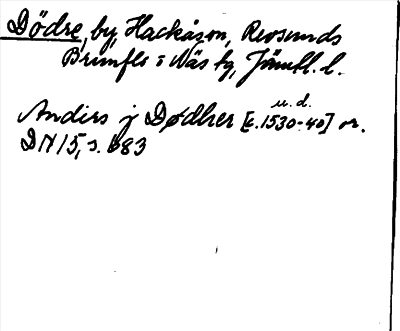 Dödre, by, Hackåson, Revsunds
Brunflo o Näs tg, Jämtl. l.
u. d.
Anders j Dødher [c. 1530-40] or.
DN 15, s. 683